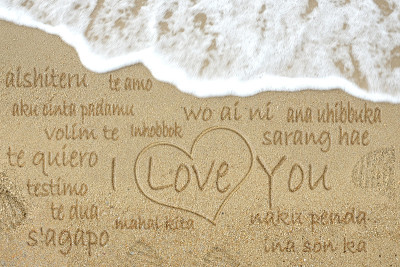 alshiteru te amo
aku cinta padamu wo ai ni ana uhibbuka
volim te Inhobbok sarang hae
te quiero I Love You
testimo
te dua mahal kita naku penda
s'agapo ina son ka